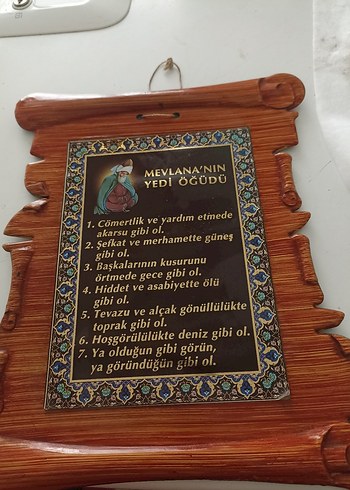 MEVLANA'NIN
YEDİ ÖĞÜDÜ
1. Cömertlik ve yardım etmede
akarsu gibi ol.
2. Şefkat ve merhamette güneş
gibi ol.
3. Başkalarının kusurunu
örtmede gece gibi ol.
4. Hiddet ve asabiyette ölü
gibi ol.
5. Tevazu ve alçak gönüllülükte
toprak gibi ol.
6. Hoşgörülülükte deniz gibi ol.
7. Ya olduğun gibi görün,
ya göründüğün gibi ol.